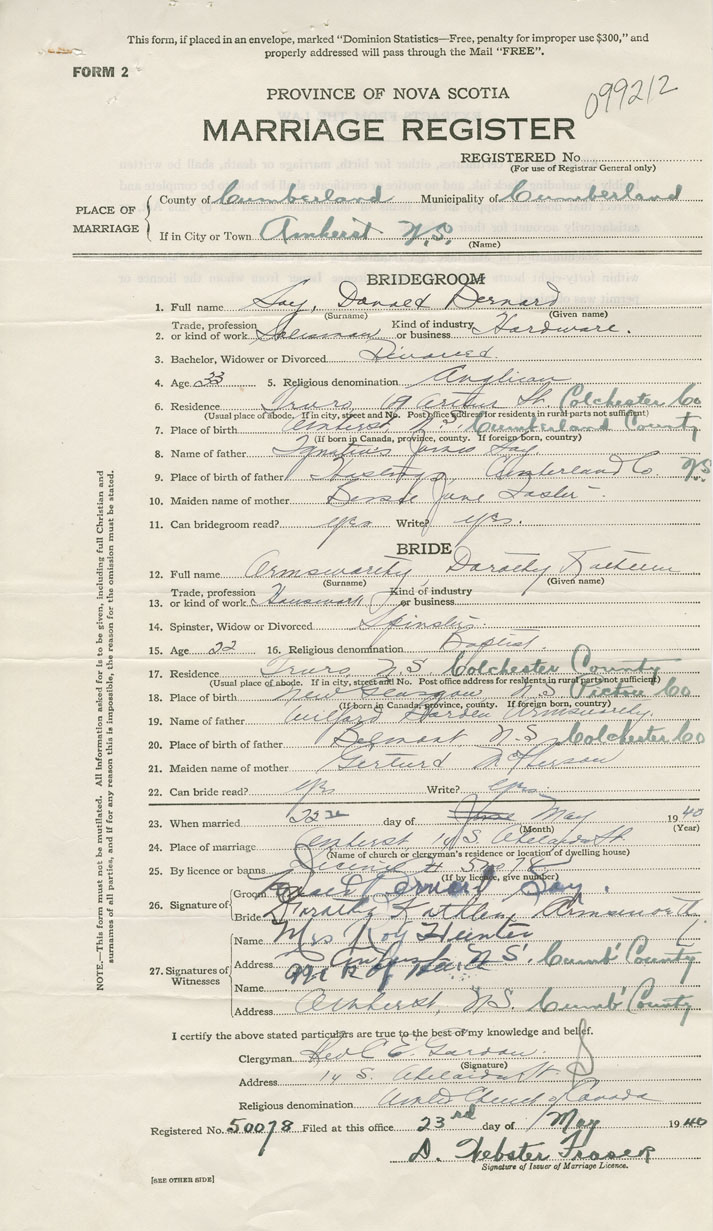 This form, if placed in an envelope, marked "Dominion Statistics—Free, penalty for improper use $300," and
properly addressed will pass through the Mail "FREE".
FORM 2
099212
PROVINCE OF NOVA SCOTIA
MARRIAGE REGISTER
REGISTERED No.
(For use of Registrar General only)
PLACE OF MARRIAGE
County of Cumberland Municipality of Cumberland
If in City or Town Amherst N.S.
(Name)
BRIDEGROOM
1. Full name Soy, Donald Bernard
(Surname) (Given name)
2. Trade, profession or kind of work Salesman Kind of industry or business Hardware.
3. Bachelor, Widower or Divorced Divorced.
4. Age 33 5. Religious denomination Anglican
6. Residence Truro, Arthur St. Colchester Co
(Usual place of abode. If in city, street and No. Post office address for residents in rural parts not sufficient)
7. Place of birth Amherst N.S. Cumberland County
(If born in Canada, province, county. If foreign born, country)
8. Name of father Ignatius James Soy
9. Place of birth of father Hastings, Cumberland Co. N.S.
10. Maiden name of mother Bessie Jane
11. Can bridegroom read? yes Write? yes.
BRIDE
12. Full name Armsworthy, Dorothy Kathleen
(Surname) (Given name)
13. Trade, profession or kind of work Housework Kind of industry or business
14. Spinster, Widow or Divorced Spinster
15. Age 22 16. Religious denomination Baptist
17. Residence Truro N.S Colchester County
(Usual place of abode. If in city, street and No. Post office address for residents in rural parts not sufficient)
18. Place of birth New Glasgow N.S Pictou Co
(If born in Canada, province, county. If foreign born, country)
19. Name of father Wilfard Armsworthy
20. Place of birth of father Belmont N.S Colchester Co
21. Maiden name of mother Gerturd McPherson
22. Can bride read? yes Write? yes
23. When married 22nd day of June May 1940
(Month) (Year)
24. Place of marriage Amherst 14 S. Adelaide St
(Name of church or clergyman's residence or location of dwelling house)
25. By licence or banns Licence # 50078
(If by licence, give number)
26. Signature of
Groom Donald Bernard Soy.
Bride Dorothy Kathleen Armsworthy
27. Signatures of Witnesses
Name Mrs Roy Hunter
Address Amherst N.S. Cumb' County
Name
Address Amherst, N.S. Cumb' County
I certify the above stated particulars are true to the best of my knowledge and belief.
Clergyman Rev C E. Gordon.
(Signature)
Address 14 S. Adelaide St.
Religious denomination United Church of Canada
Registered No. 50078 Filed at this office 23rd day of May 1940
D. Webster Fraser
Signature of Issuer of Marriage Licence.
[SEE OTHER SIDE]
NOTE.—This form must not be mutilated. All information asked for is to be given, including full Christian and
surnames of all parties, and if for any reason this is impossible, the reason for the omission must be stated.